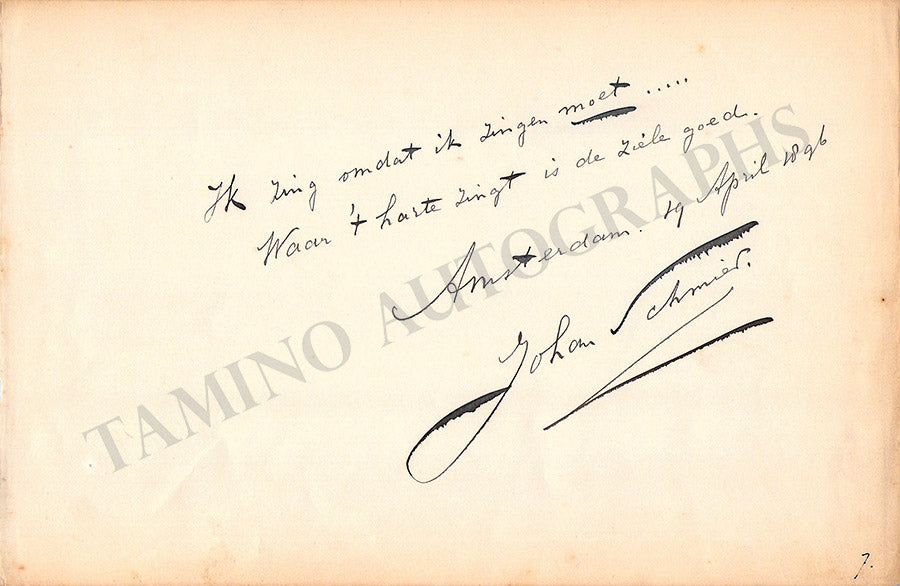 Ik zing omdat ik zingen moet .....
Waar 't harte zingt is de ziele goed.
Amsterdam. 19 April 1896
Johan Schmier.
TAMINO AUTOGRAPHS
7.